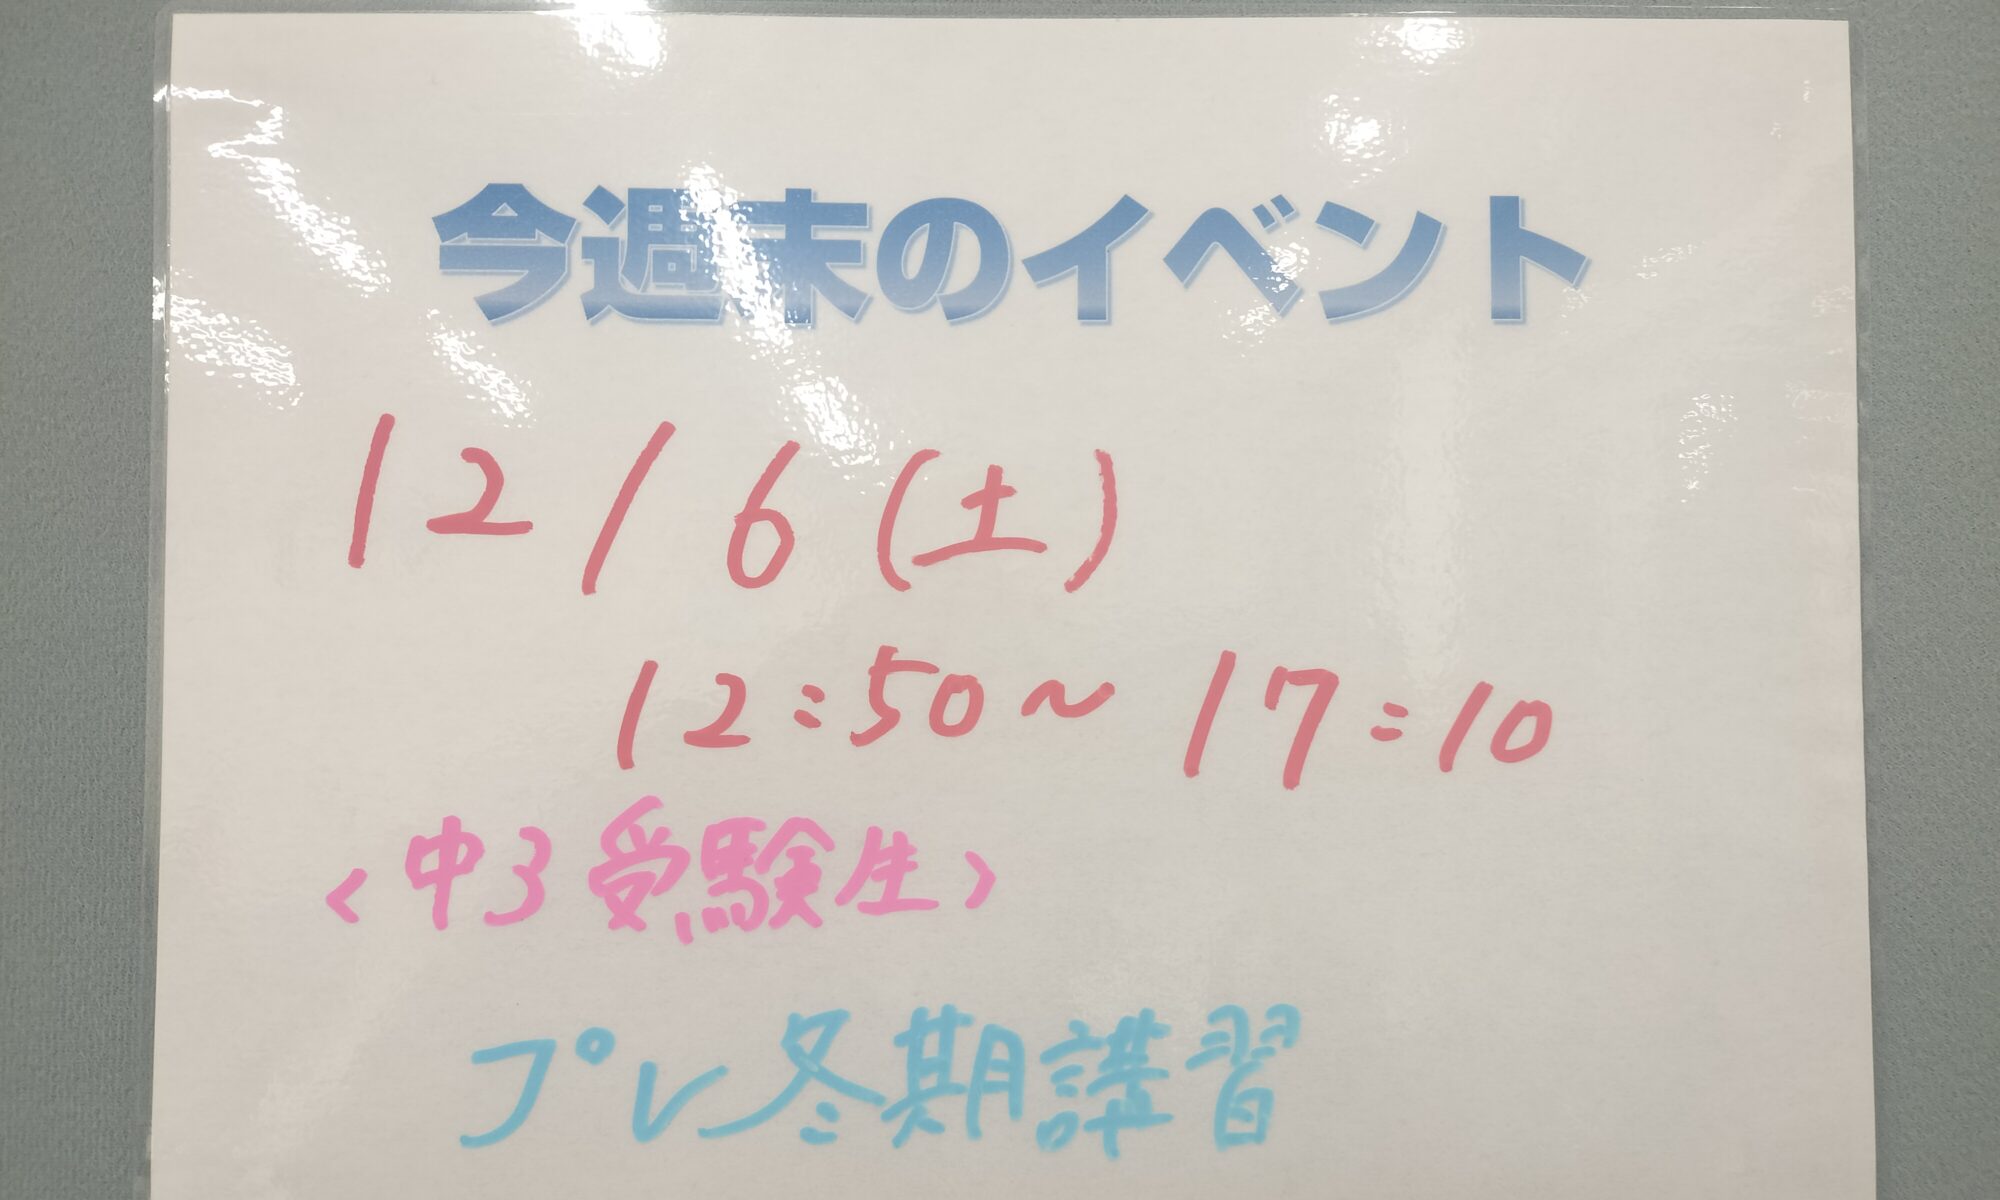 今週末のイベント
12/6(土)
12:50~17:10
<中3受験生>
プレ冬期講習